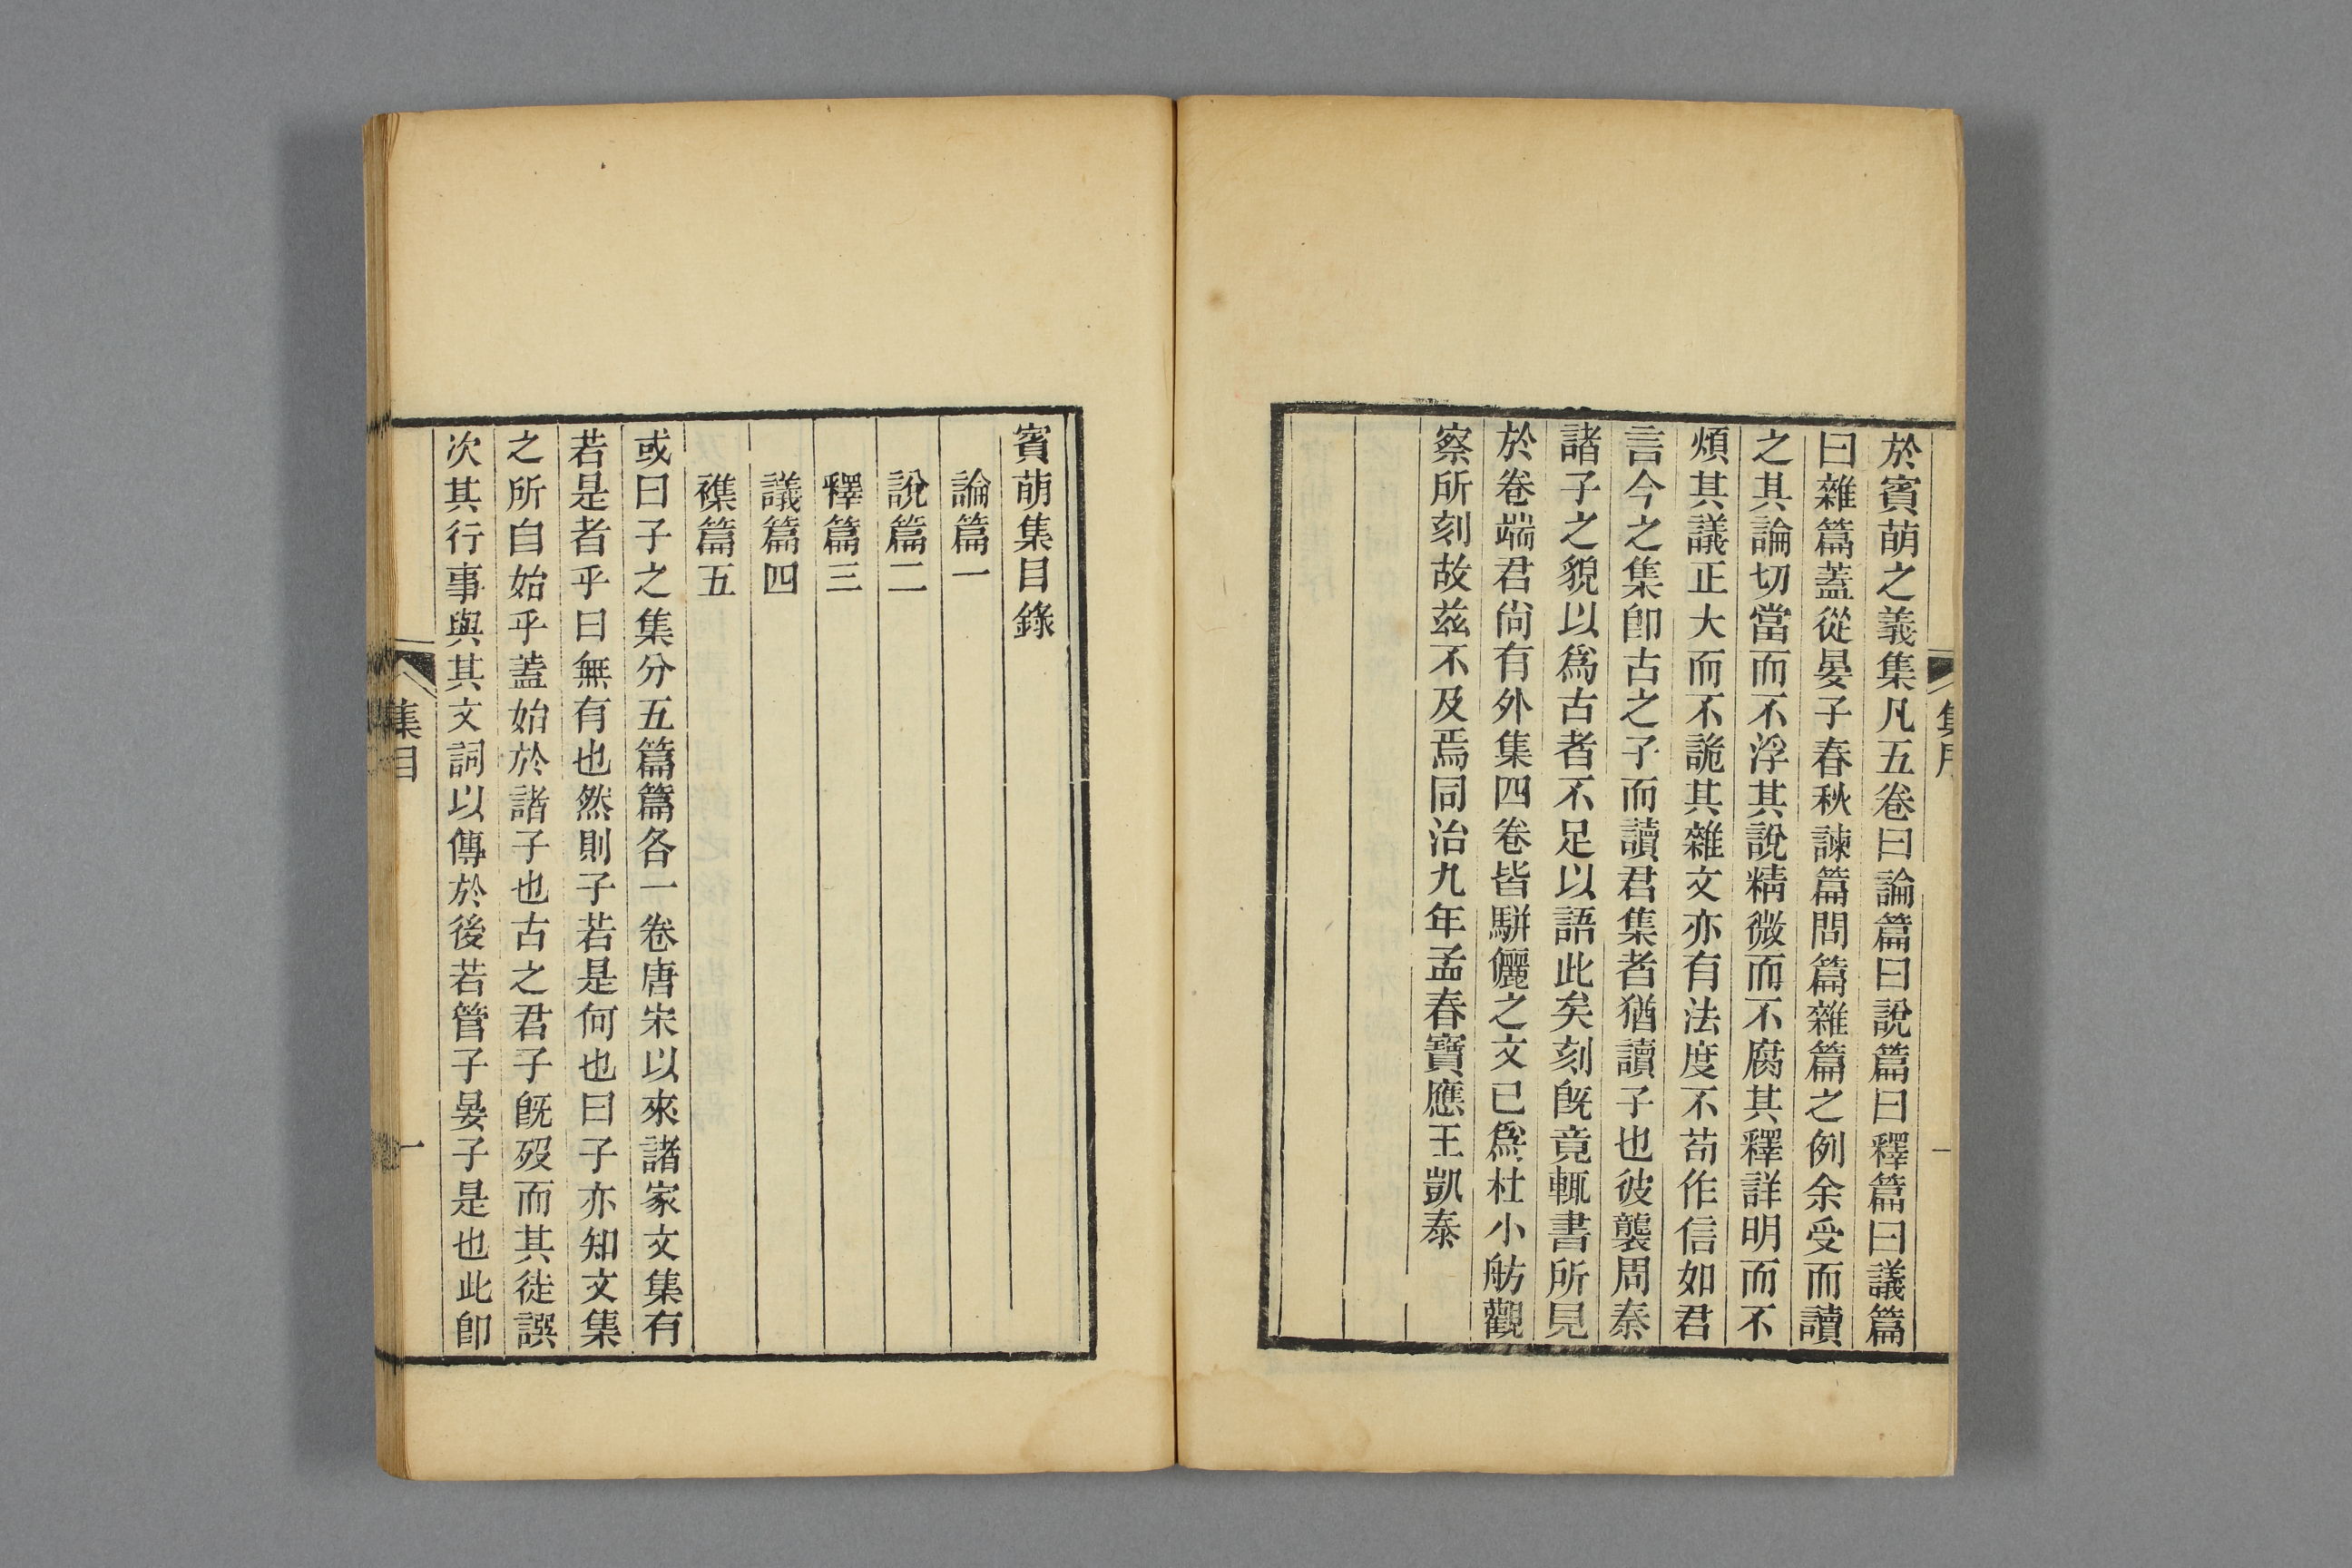 於賓萌之義集凡五卷曰論篇曰說篇曰釋篇曰議篇
曰雜篇蓋從晏子春秋諫篇問篇雜篇之例余受而讀
之其論切當而不浮其說精微而不腐其釋詳明而不
煩其議正大而不詭其雜文亦有法度不苟作信如君
言今之集卽古之子而讀君集者猶讀子也彼襲周秦
諸子之貌以爲古者不足以語此矣刻旣竟輒書所見
於卷端君尙有外集四卷皆駢儷之文已爲杜小舫觀
察所刻故茲不及焉同治九年孟春寶應王凱泰
集序
一
賓萌集目錄
論篇一
說篇二
釋篇三
議篇四
襍篇五
或曰子之集分五篇篇各一卷唐宋以來諸家文集有
若是者乎曰無有也然則子若是何也曰子亦知文集
之所自始乎蓋始於諸子也古之君子旣歿而其徒譔
次其行事與其文詞以傳於後若管子晏子是也此卽
集目
一